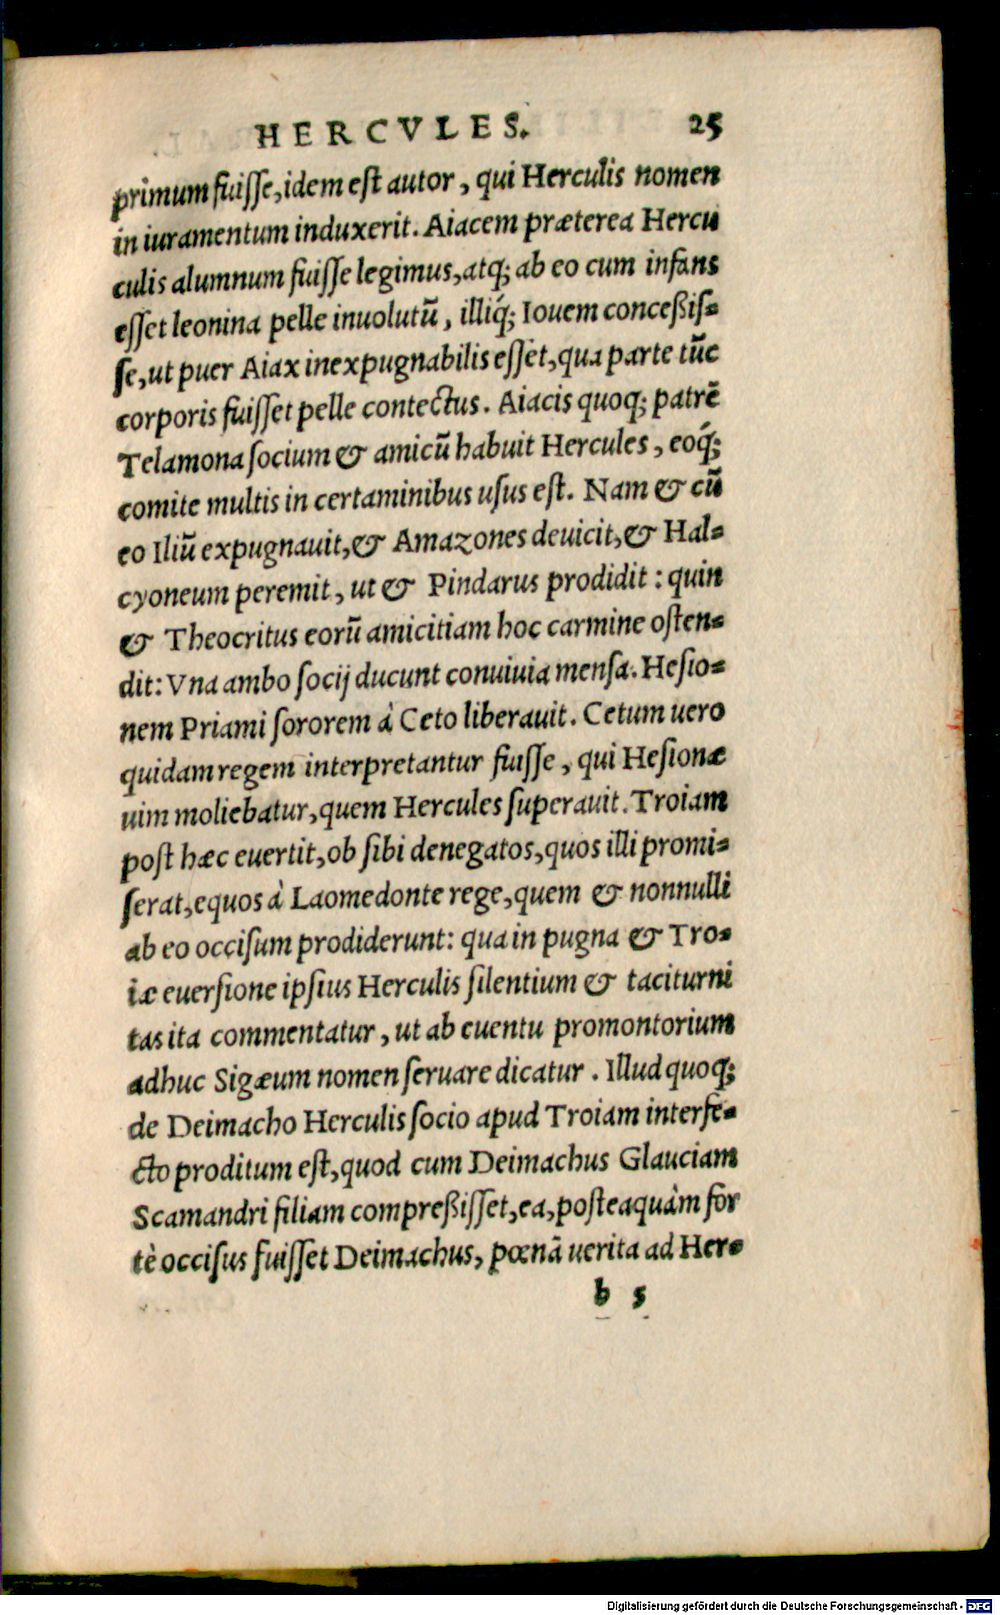 HERCVLES. 25
primum fuiſſe, idem eſt autor, qui Herculis nomen
in iuramentum induxerit. Aiacem præterea Hercu
culis alumnum fuiſſe legimus, atq; ab eo cum infans
eſſet leonina pelle inuolutũ, illiq́; Iouem conceßiſ=
ſe, ut puer Aiax inexpugnabilis eſſet, qua parte tũc
corporis fuiſſet pelle contectus. Aiacis quoq; patrẽ
Telamona ſocium & amicũ habuit Hercules, eoq́;
comite multis in certaminibus uſus eſt. Nam & cũ
eo Iliũ expugnauit, & Amazones deuicit, & Hal=
cyoneum peremit, ut & Pindarus prodidit: quin
& Theocritus eorũ amicitiam hoc carmine oſten=
dit: Vna ambo ſocij ducunt conuiuia menſa. Heſio=
nem Priami ſororem à Ceto liberauit. Cetum uero
quidam regem interpretantur fuiſſe, qui Heſionæ
uim moliebatur, quem Hercules ſuperauit. Troiam
poſt hæc euertit, ob ſibi denegatos, quos illi promi=
ſerat, equos à Laomedonte rege, quem & nonnulli
ab eo occiſum prodiderunt: qua in pugna & Tro=
iæ euerſione ipſius Herculis ſilentium & taciturni
tas ita commentatur, ut ab euentu promontorium
adhuc Sigæum nomen ſeruare dicatur. Illud quoq;
de Deimacho Herculis ſocio apud Troiam interfe=
cto proditum eſt, quod cum Deimachus Glauciam
Scamandri filiam compreßiſſet, ea, poſteaquàm for
tè occiſus fuiſſet Deimachus, pœnã uerita ad Her=
b 5
Digitalisierung gefördert durch die Deutsche Forschungsgemeinschaft - DFG